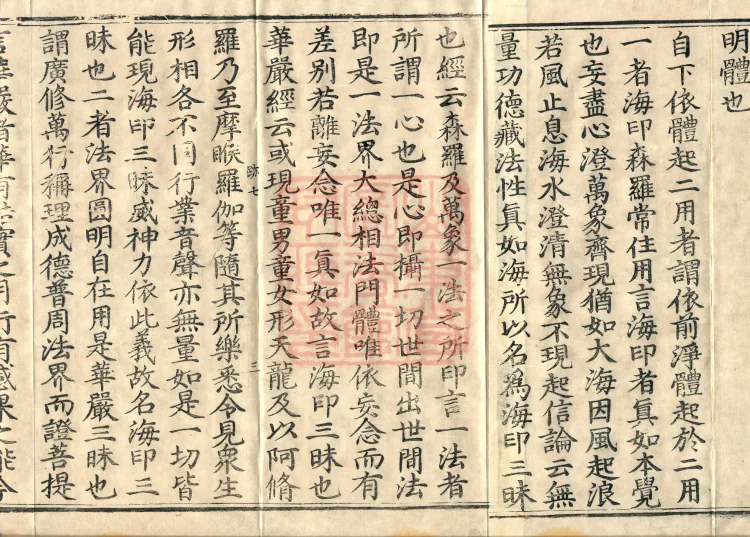 明體也
自下依體起二用者謂依前淨體起於二用
一者海印森羅常住用言海印者真如本覺
也妄盡心澄萬象齊現猶如大海因風起浪
若風止息海水澄清無象不現起信論云無
量功德藏法性真如海所以名為海印三昧
也經云森羅及萬象一法之所印言一法者
所謂一心也是心即攝一切世間出世間法
即是一法界大總相法門體唯依妄念而有
差別若離妄念唯一真如故言海印三昧也
華嚴經云或現童男童女形天龍及以阿脩
羅乃至摩睺羅伽等隨其所樂悉令見眾生
跡七
三
形相各不同行業音聲亦無量如是一切皆
能現海印三昧威神力依此義故名海印三
昧也二者法界圓明自在用是華嚴三昧也
謂廣修萬行稱理成德普周法界而證菩提
言華嚴者華有結實之用行有感果之能今